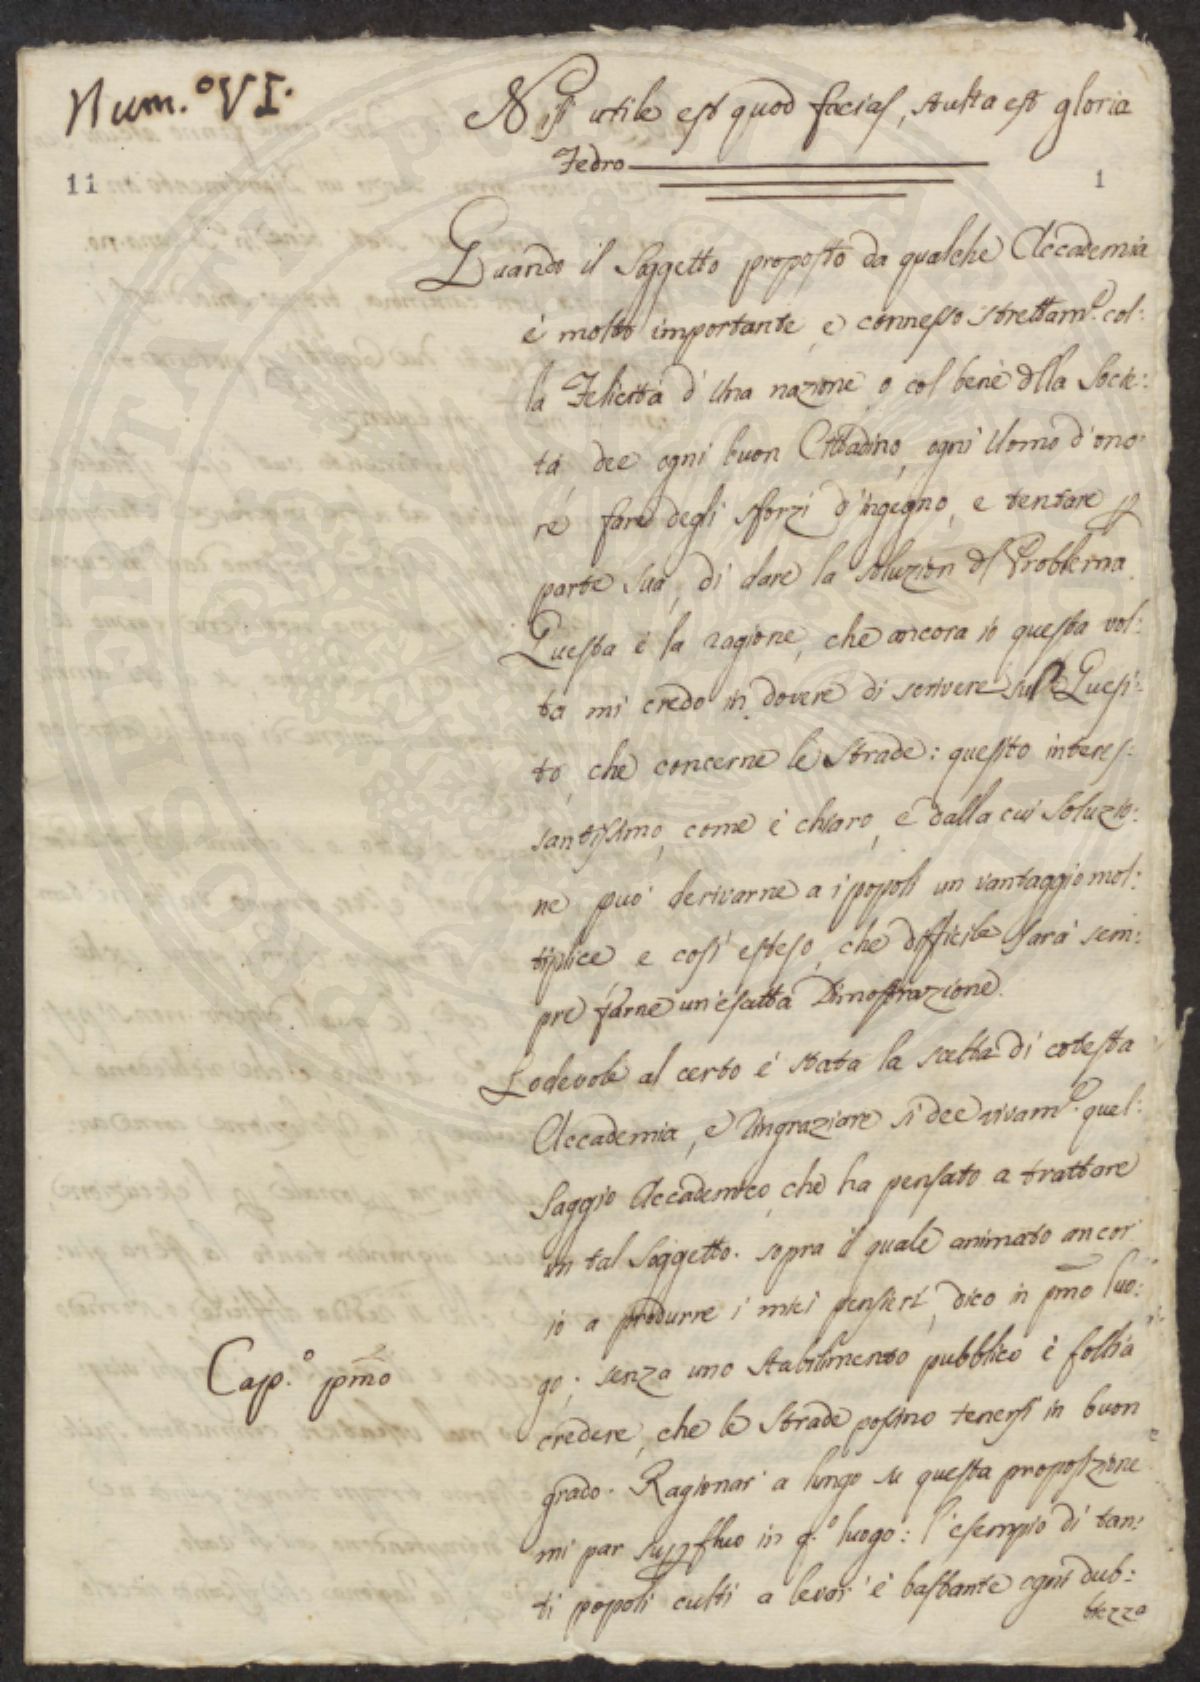 Num.º VI.
Nisi utile est quod facias, stulta est gloria
Fedro
11
1
Quando il Soggetto proposto da qualche Accademia
è molto importante, e connesso strettam.e col:
la Felicità d'una nazione o col bene dlla Socie:
tà, dee ogni buon Cittadino, ogni Uomo d'ono:
re fare degli sforzi d'ingegno, e tentare p
parte sua, di dare la soluzion dl Problema.
Questa è la ragione, che ancora io questa vol:
ta mi credo in dovere di scrivere sul Quesi:
to, che concerne le Strade: quesito interes:
santissimo, come è chiaro, e dalla cui soluzio:
ne può derivarne a i popoli un vantaggio mol:
tiplice e così esteso, che difficile sarà sem:
pre farne un'esatta Dimostrazione.
Lodevole al certo è stata la scelta di cotesta
Accademia, e ringraziare si dee vivam.e quel:
Saggio Accademico, che ha pensato a trattare
un tal Soggetto. sopra il quale animato ancor
io a produrre i miei pensieri, dico in pmo luo:
Cap.º pmo
go; senza uno stabilimento pubblico è follia
credere, che le Strade possino tenersi in buon
grado. Ragionar a lungo su questa proposizione
mi par supfluo in q.º luogo: l'esempio di tan:
ti popoli culti a levar è bastante ogni dub:
biezza